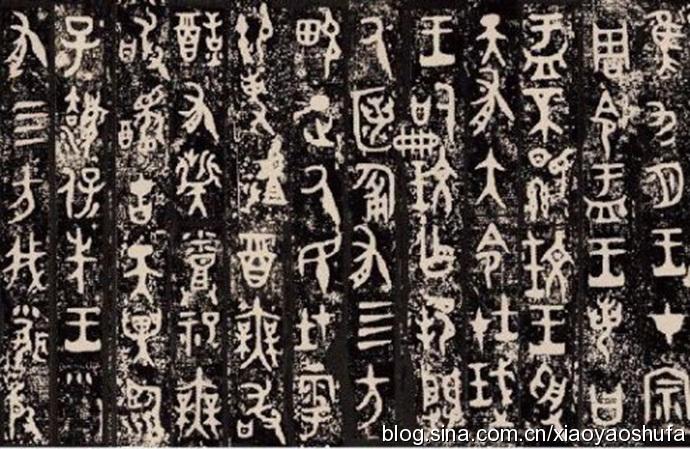 隹九月王才宗
周令盂王若曰
盂不顯玟王受
天有大令在珷
王嗣玟乍邦闢
厥匿匍有四方
畯正厥民在雩
御事酉無敢
有烝祀無
敢古天異臨
子灋保先王
有四方我聞殷
blog.sina.com.cn/xiaoyaoshufa